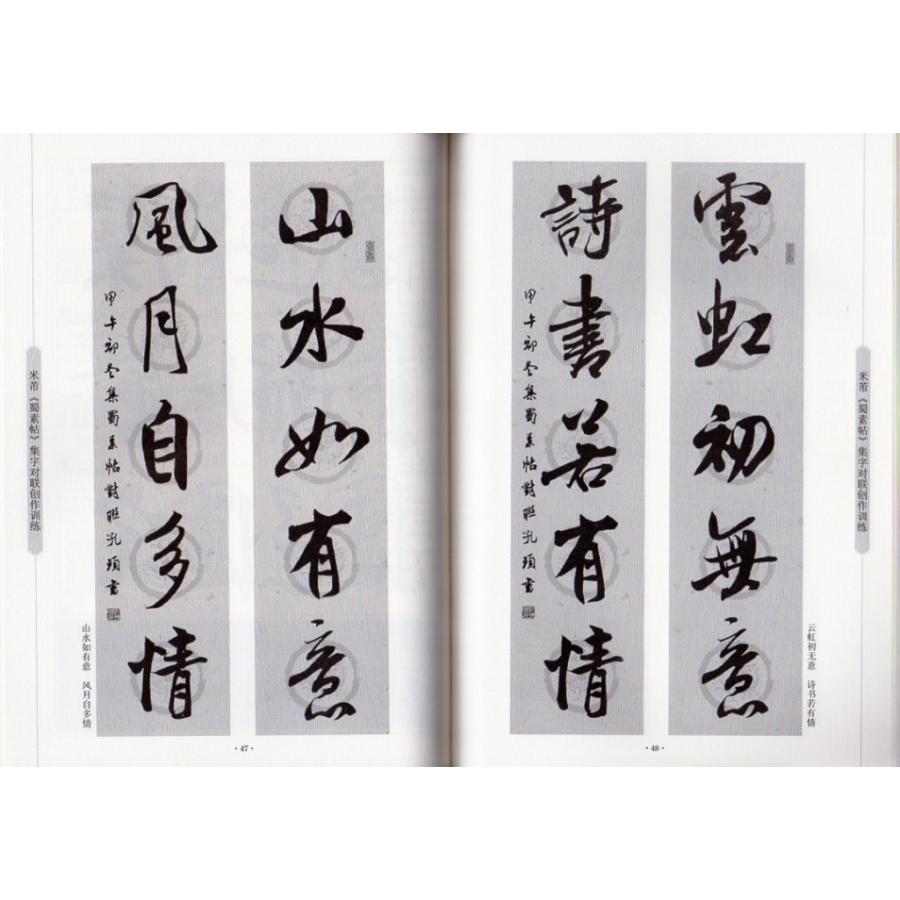 米芾《蜀素帖》集字对联创作训练
山水如有意
風月自多情
甲午初 集蜀素帖對聯孔 書
山水如有意　风月自多情
·47·
米芾《蜀素帖》集字对联创作训练
雲虹初無意
詩書若有情
甲午初 集蜀素帖對聯孔 書
云虹初无意　诗书若有情
·48·